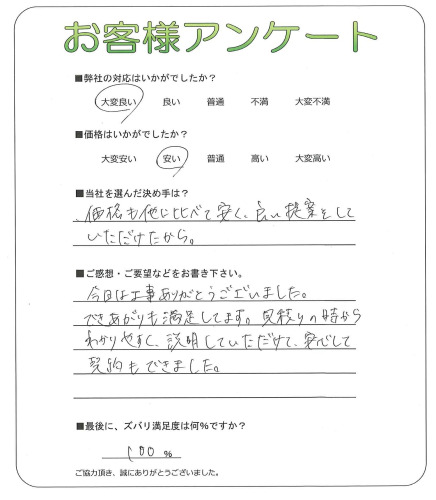 お客様アンケート
■弊社の対応はいかがでしたか？
大変良い 良い 普通 不満 大変不満
■価格はいかがでしたか？
大変安い 安い 普通 高い 大変高い
■当社を選んだ決め手は？
価格も他に比べて安く、良い提案をして
いただけたから。
■ご感想・ご要望などをお書き下さい。
今回は工事ありがとうございました。
できあがりも満足してます。見積りの時から
わかりやすく、説明していただけて、安心して
契約もできました。
■最後に、ズバリ満足度は何%ですか？
100 %
ご協力頂き、誠にありがとうございました。